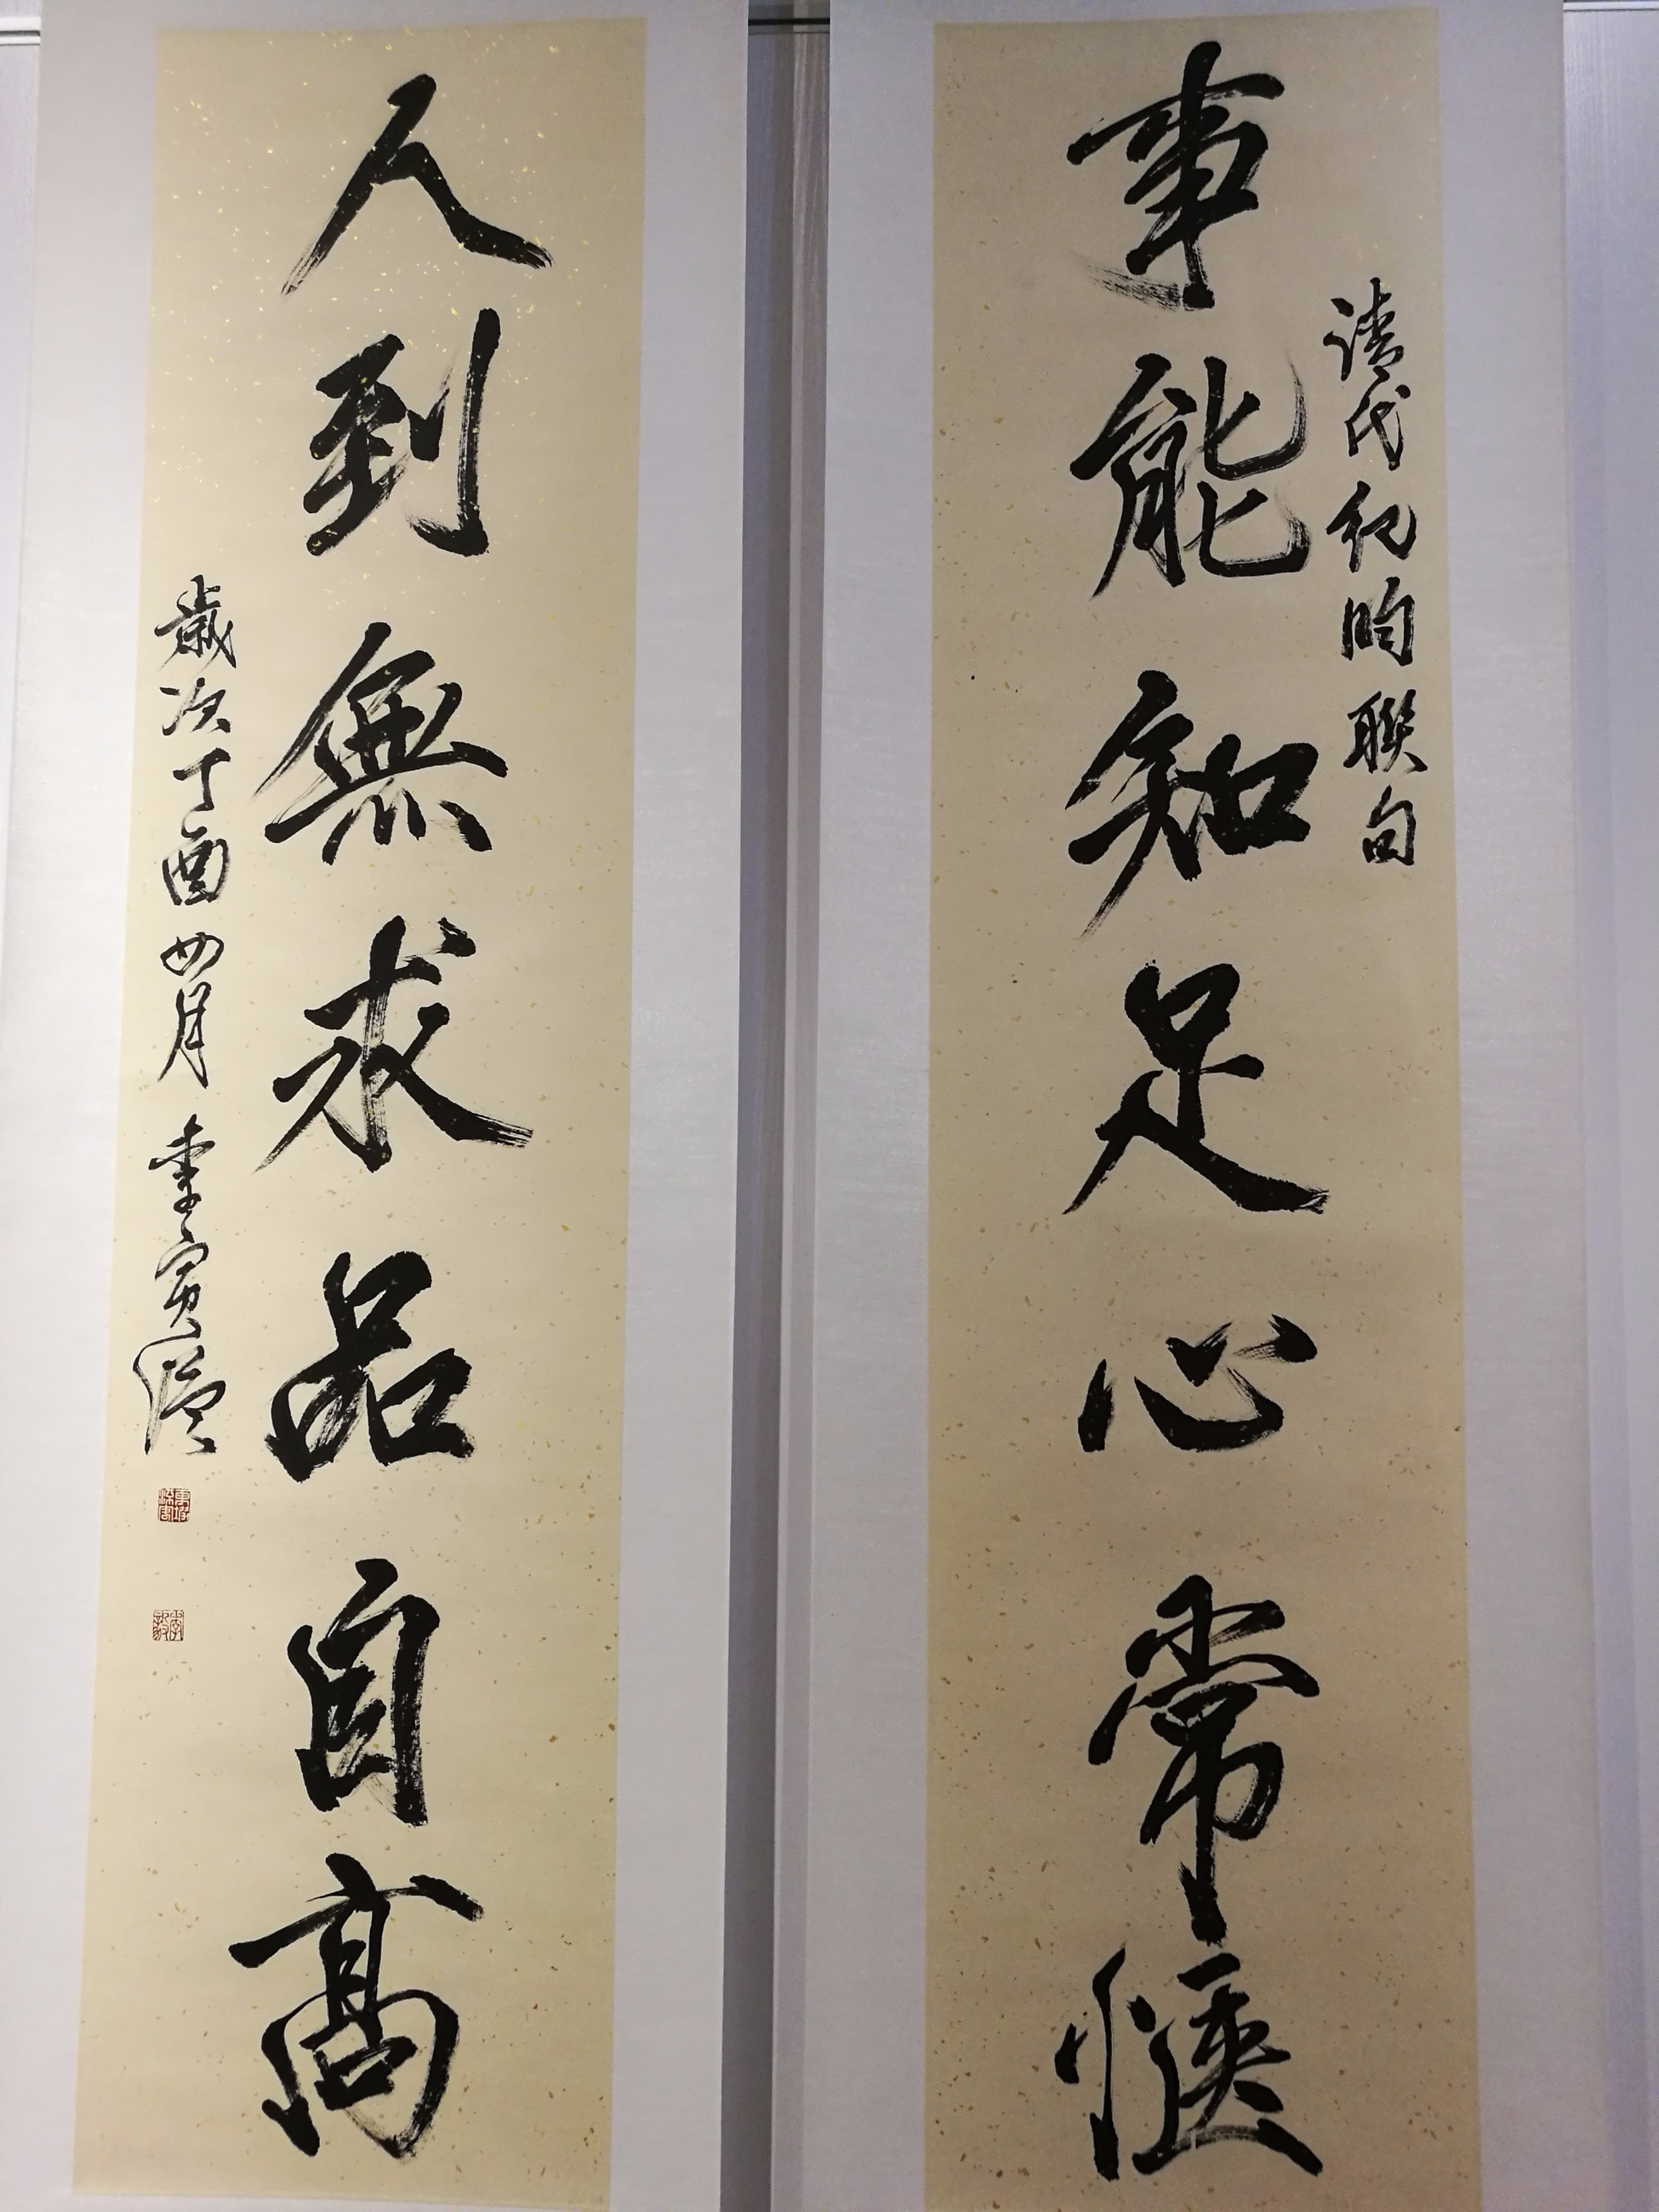 事能知足心常惬
清代纪昀聯句
人到無求品自高
歲次丁酉四月李寅